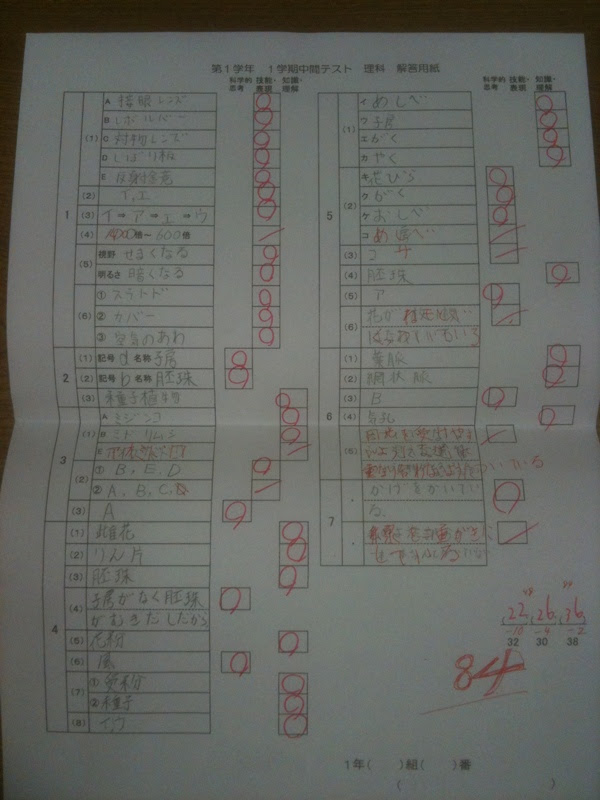 第1学年 1学期中間テスト 理科 解答用紙
科学的思考 技能・表現 知識・理解
科学的思考 技能・表現 知識・理解
1
(1) A 接眼レンズ
B レボルバー
C 対物レンズ
D しぼり板
E 反射鏡
(2) イ、エ
(3) イ⇒ア⇒エ⇒ウ
(4) 倍~600倍
(5) 視野 せまくなる
明るさ 暗くなる
(6) ①スライド
②カバー
③空気のあわ
2
(1) 記号 a 名称 子房
(2) 記号 b 名称 胚珠
(3) 種子植物
3
(1) A ミジンコ
B ミドリムシ
E
(2) ①B、E、D
②A、B、C、
(3) A
4
(1) 雌花
(2) りん片
(3) 胚珠
(4) 子房がなく胚珠
がむきだしだから
(5) 花粉
(6) 風
(7) ①受粉
②種子
(8) イ、ウ
5
(1) イ めしべ
ウ 子房
エ がく
カ やく
(2) キ 花びら
ク がく
ケ おしべ
コ めしべ
(3) コ
(4) 胚珠
(5) ア
(6) 花が
6
(1) 葉脈
(2) 網状脈
(3) B
(4) 気孔
(5)
ついている
7
・ かげをかいてい
る。
・
22 26 36
-10 -4 -2
32 30 38
84
1年( )組( )番
( )